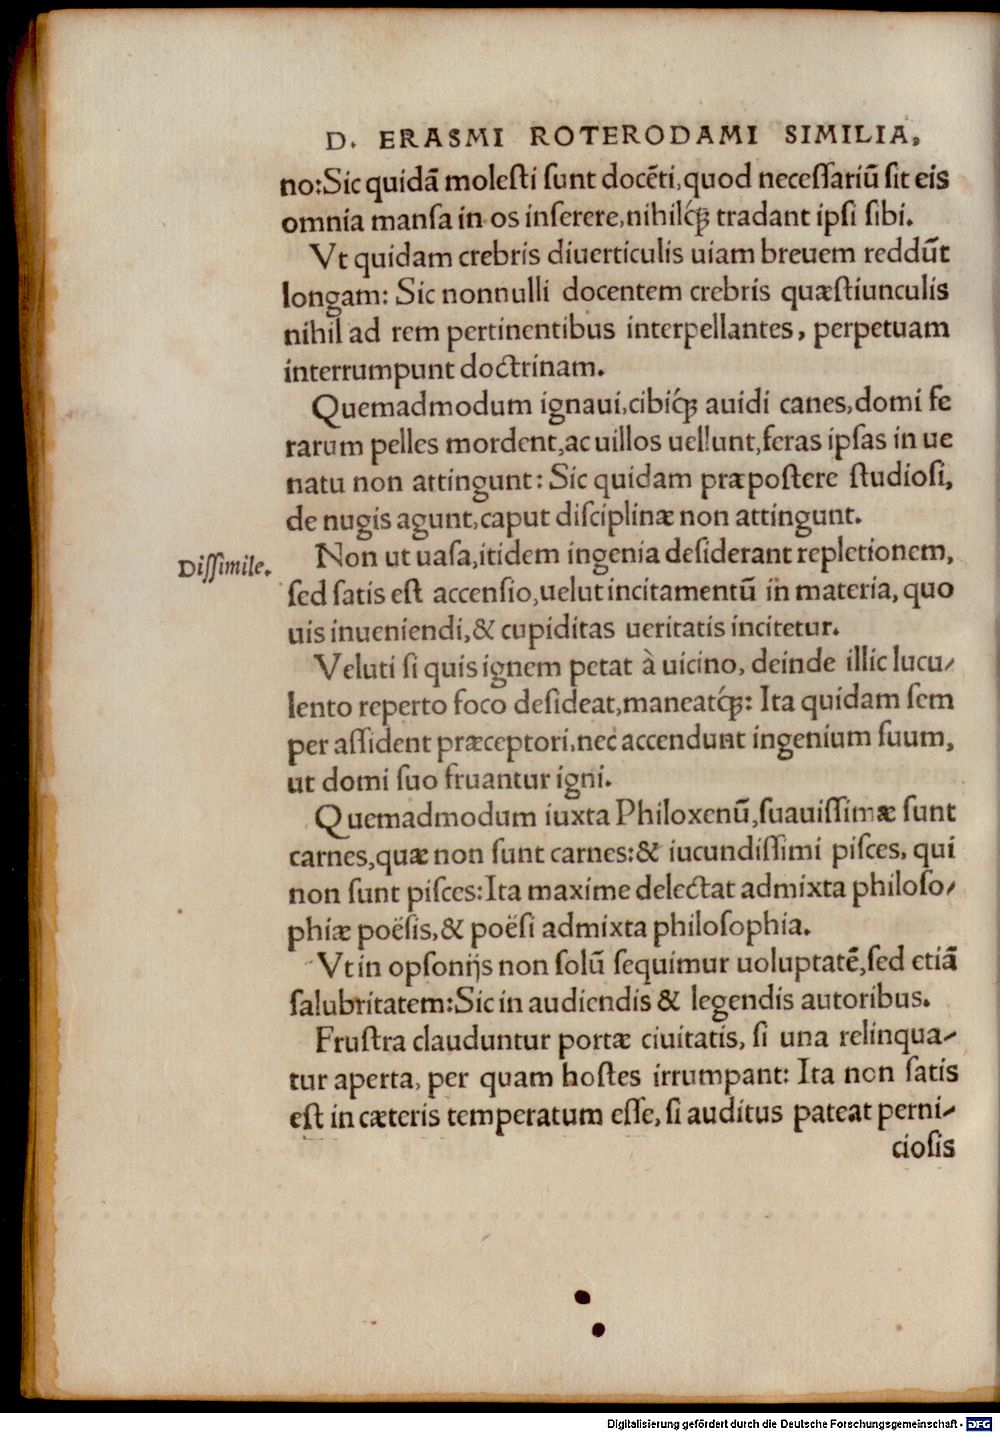 D. ERASMI ROTERODAMI SIMILIA,
no:Sic quidā moleſti ſunt docēti,quod neceſſariū ſit eis
omnia manſa in os inſerere,nihilq́ꝫ tradant ipſi ſibi.
Vt quidam crebris diuerticulis uiam breuem reddūt
longam: Sic nonnulli docentem crebris quæſtiunculis
nihil ad rem pertinentibus interpellantes, perpetuam
interrumpunt doctrinam.
Quemadmodum ignaui,cibiq́ꝫ auidi canes,domi fe
rarum pelles mordent,ac uillos uellunt,feras ipſas in ue
natu non attingunt: Sic quidam præpoſtere ſtudioſi,
de nugis agunt,caput diſciplinæ non attingunt.
Diſſimile.
Non ut uaſa,itidem ingenia deſiderant repletionem,
ſed ſatis eſt accenſio,uelut incitamentū in materia, quo
uis inueniendi,& cupiditas ueritatis incitetur.
Veluti ſi quis ignem petat à uicino, deinde illic lucu⸗
lento reperto foco deſideat,maneatq́ꝫ: Ita quidam ſem
per aſſident præceptori,nec accendunt ingenium ſuum,
ut domi ſuo fruantur igni.
Quemadmodum iuxta Philoxenū,ſuauiſſimæ ſunt
carnes,quæ non ſunt carnes:& iucundiſſimi piſces, qui
non ſunt piſces:Ita maxime delectat admixta philoſo⸗
phiæ poëſis,& poëſi admixta philoſophia.
Vt in opſonijs non ſolū ſequimur uoluptatē,ſed etiā
ſalubritatem:Sic in audiendis & legendis autoribus.
Fruſtra clauduntur portæ ciuitatis, ſi una relinqua⸗
tur aperta, per quam hoſtes irrumpant: Ita non ſatis
eſt in cæteris temperatum eſſe, ſi auditus pateat perni⸗
cioſis
Digitalisierung gefördert durch die Deutsche Forschungsgemeinschaft - DFG